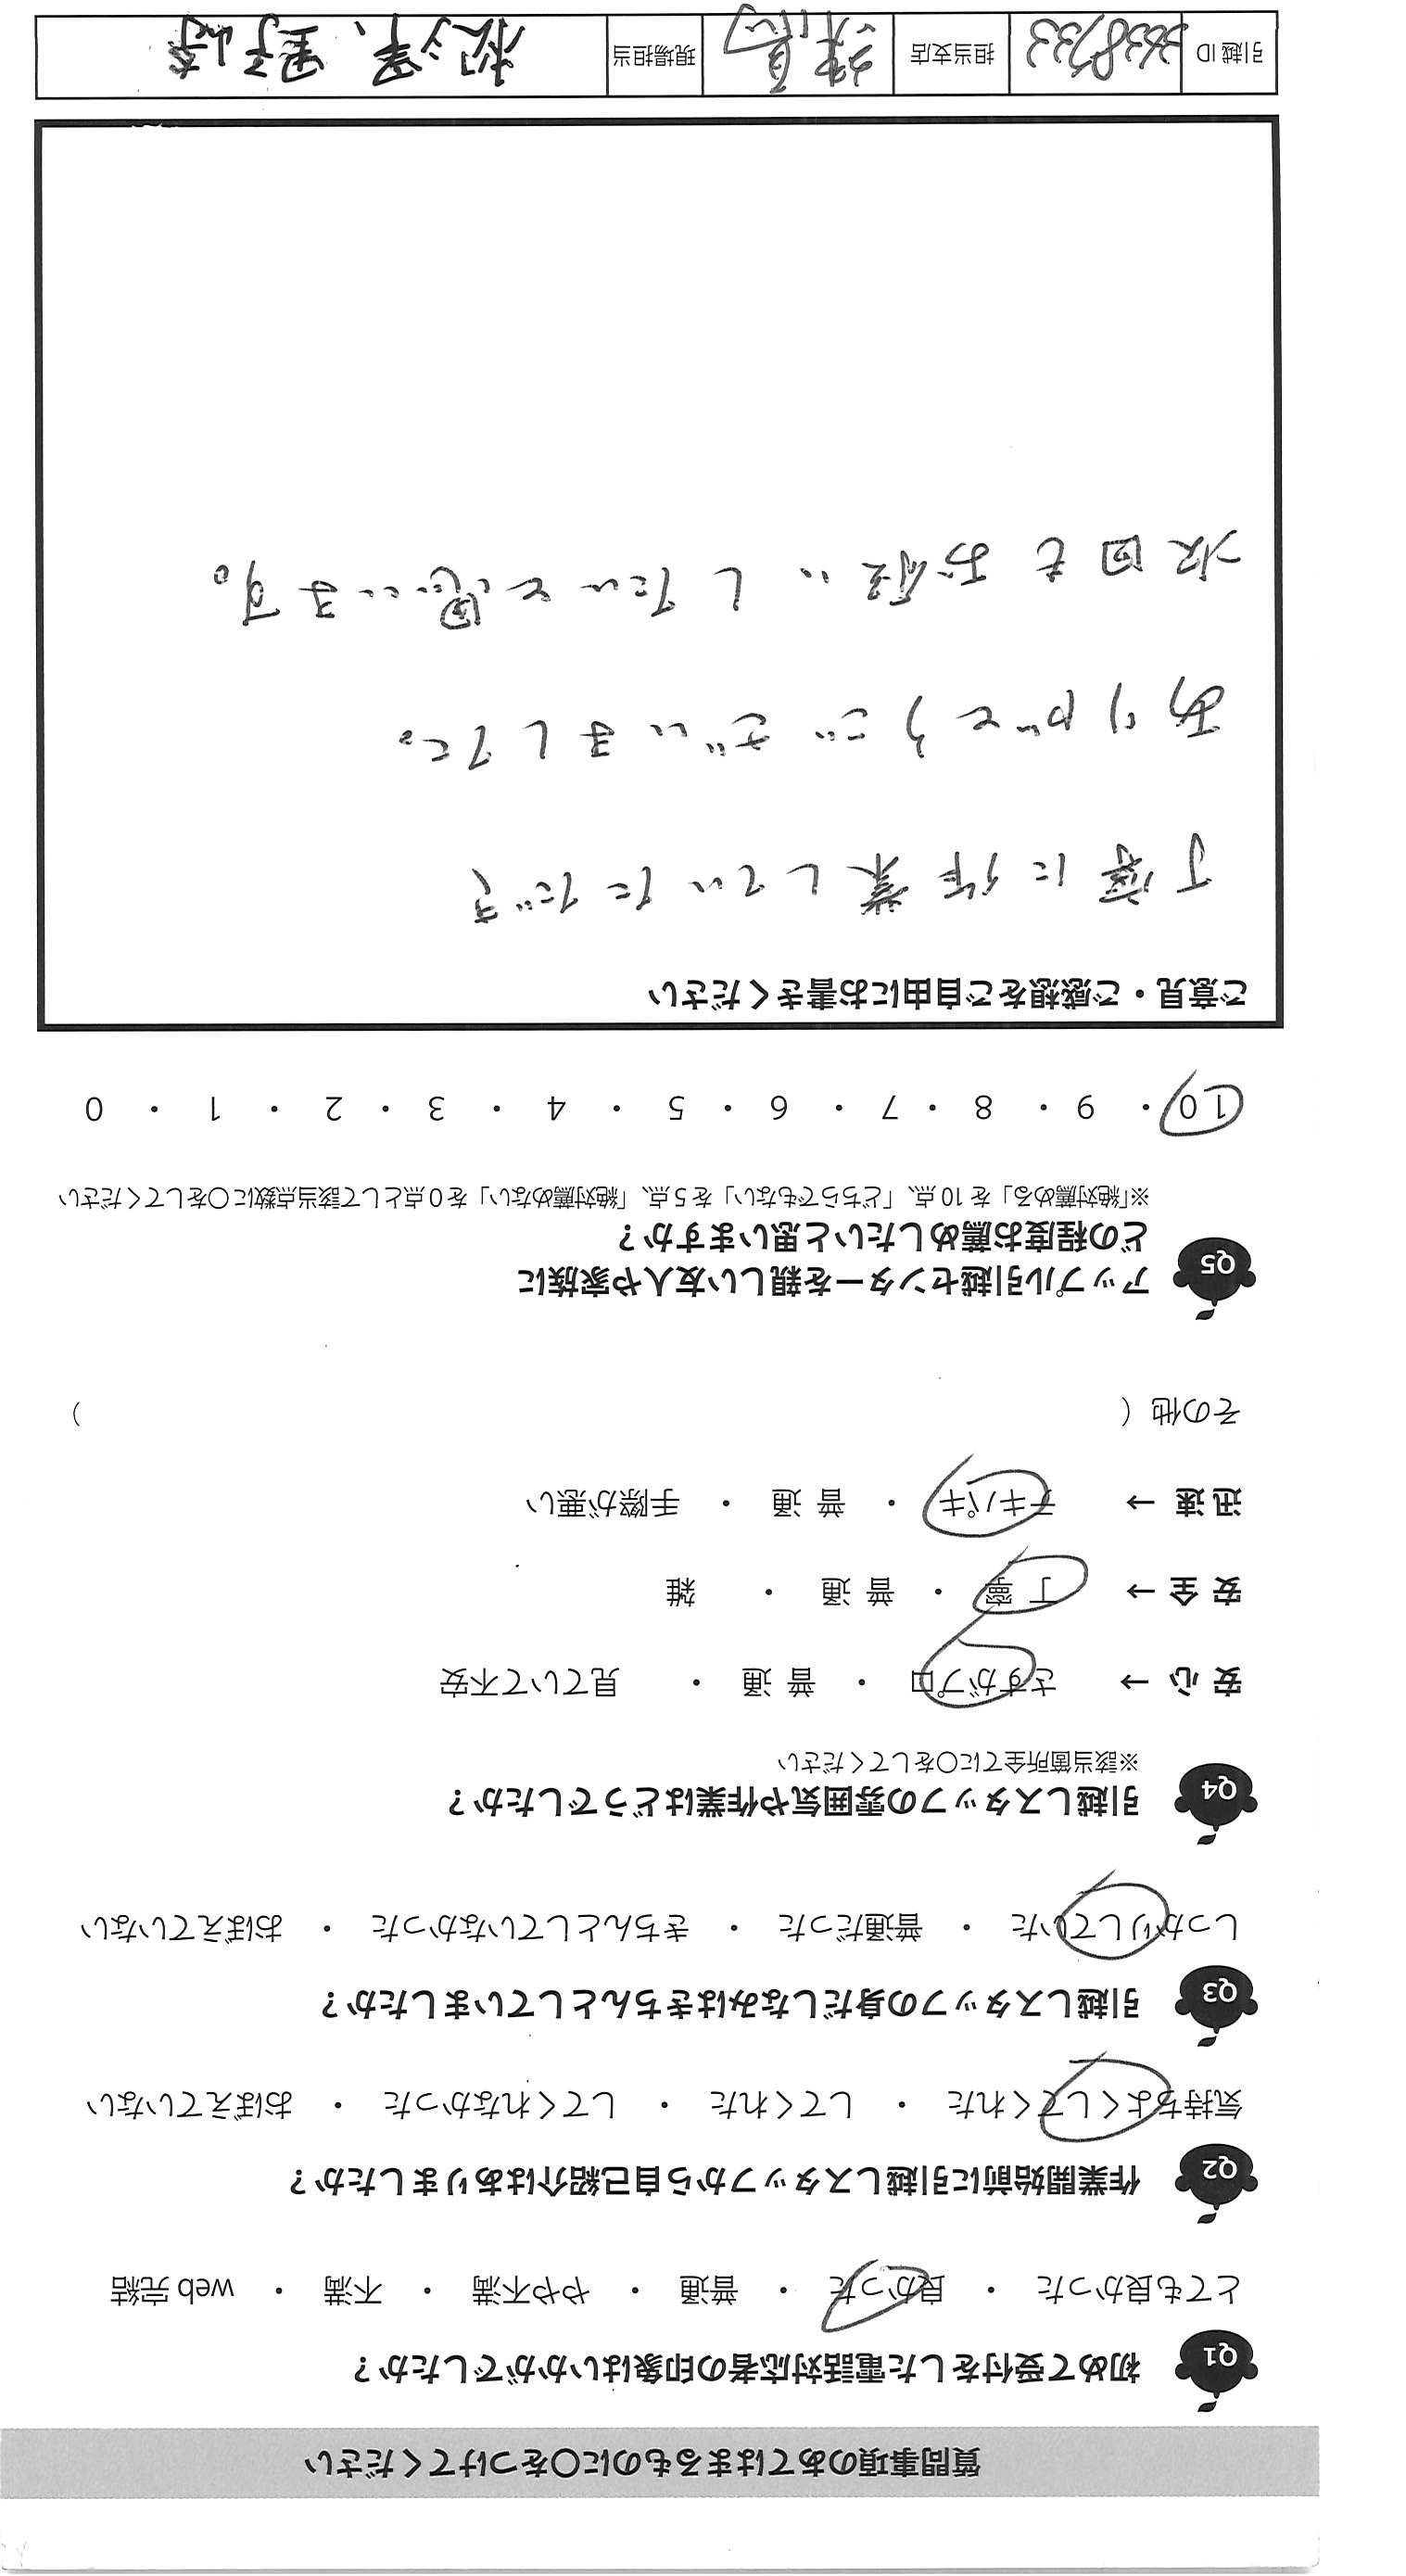 質問事項のあてはまるものに○をつけてください
Q1 初めて受付をした電話対応者の印象はいかがでしたか？
とても良かった ・ 良かった ・ 普通 ・ やや不満 ・ 不満 ・ web 完結
Q2 作業開始前に引越しスタッフから自己紹介はありましたか？
気持ちよくしてくれた ・ してくれた ・ してくれなかった ・ おぼえていない
Q3 引越しスタッフの身だしなみはきちんとしていましたか？
しっかりしていた ・ 普通だった ・ きちんとしていなかった ・ おぼえていない
Q4 引越しスタッフの雰囲気や作業はどうでしたか？
※該当箇所全てに○をしてください
安 心 → さすがプロ ・ 普 通 ・ 見ていて不安
安 全 → 丁 寧 ・ 普 通 ・ 雑
迅 速 → テキパキ ・ 普 通 ・ 手際が悪い
その他（ ）
Q5 アップル引越センターを親しい友人や家族に
どの程度お薦めしたいと思いますか？
※「絶対薦める」を 10 点、「どちらでもない」を 5 点、「絶対薦めない」を 0 点として該当点数に○をしてください
10 ・ 9 ・ 8 ・ 7 ・ 6 ・ 5 ・ 4 ・ 3 ・ 2 ・ 1 ・ 0
ご意見・ご感想をご自由にお書きください
丁寧に作業していただき
ありがとうございました。
次回もお願いしたいと思います。
引越 ID 3638733 担当支店 練馬 現場担当 松澤、野崎